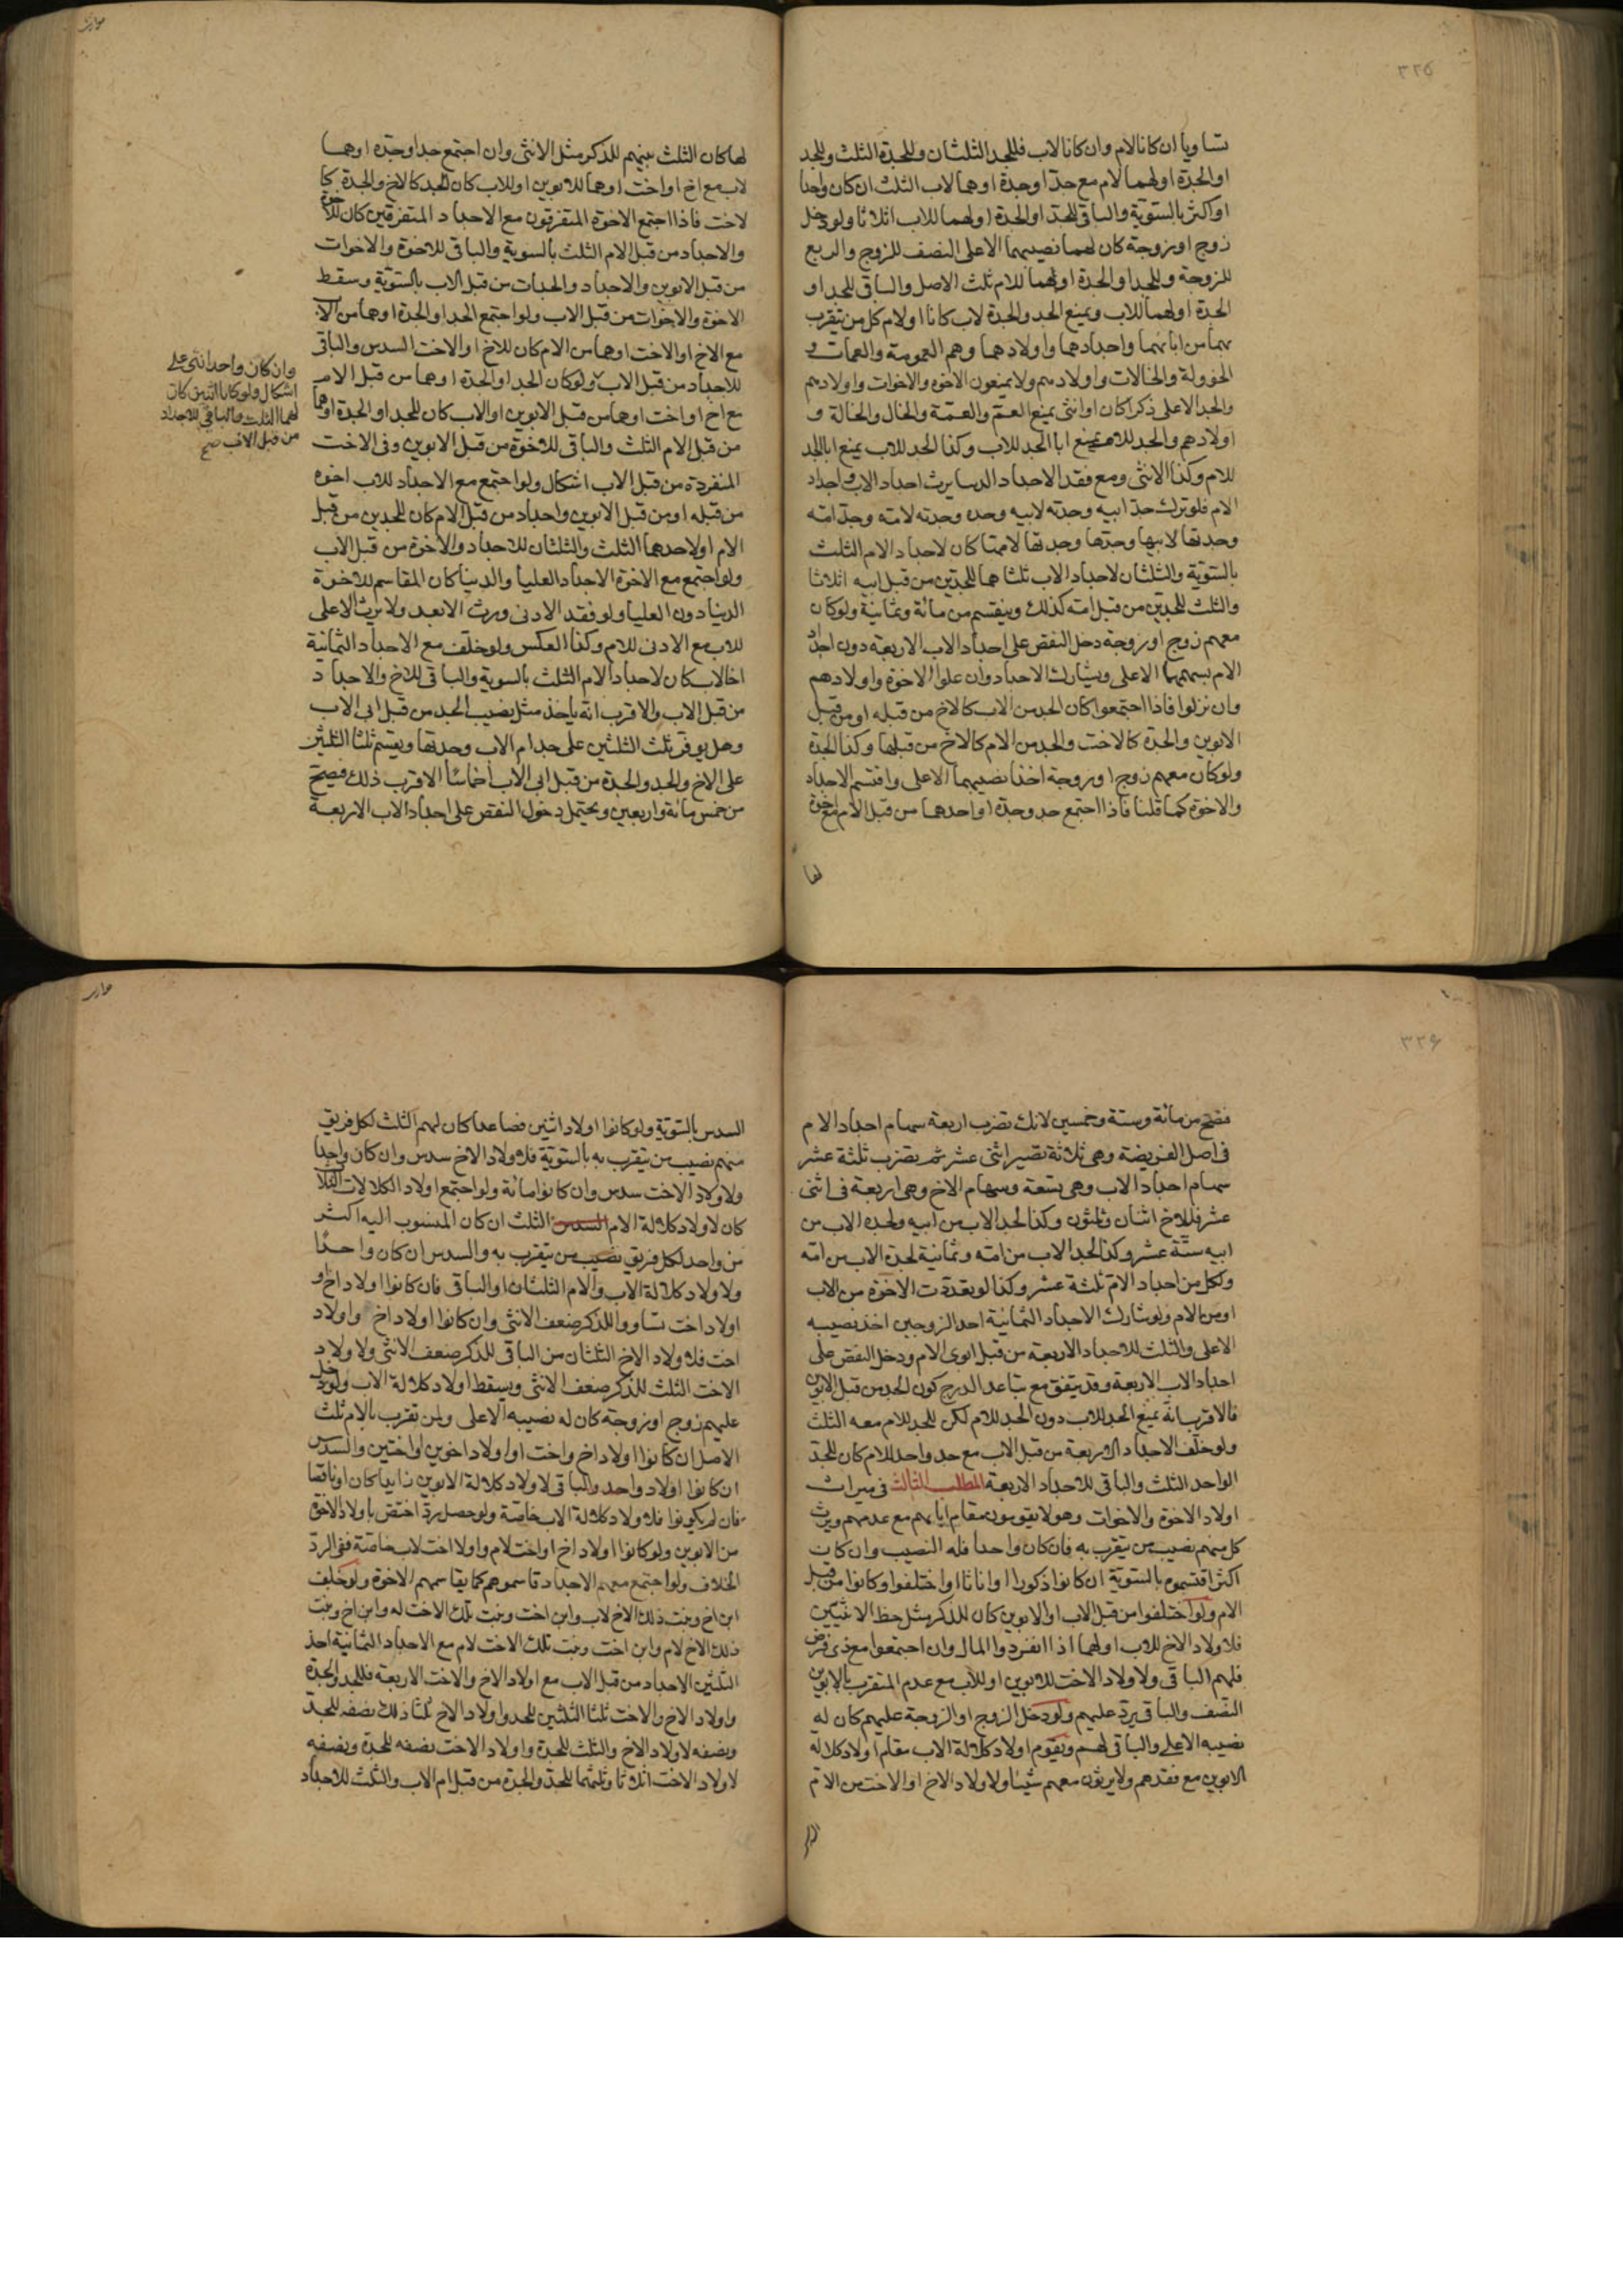 ٣٢٥
تساويا ان كانا لام وان كانا لاب فللجد الثلثان وللجدة الثلث وللجد
او الجدة او لهما لام مع جد او جدة او هما لاب الثلث ان كان واحدا
او اكثر بالسوية والباقى للجد او الجدة او لهما للاب اثلاثا ولو دخل
زوج او زوجة كان لهما نصيبهما الاعلى النصف للزوج والربع
للزوجة وللجد او الجدة او لهما للام ثلث الاصل والباقى للجد او
الجدة او لهما للاب ويمنع الجد والجدة لاب كانا او لام كل من يتقرب
بهما من ابائهما واجدادهما واولادهما وهم العمومة والعمات و
الخؤولة والخالات واولادهم ولا يمنعون الاخوة والاخوات واولادهم
والجد الاعلى ذكرا كان او انثى يمنع العم والعمة والخال والخالة و
اولادهم والجد للام يمنع ابا الجد للاب وكذا الجد للاب يمنع ابا الجد
للام وكذا الانثى ومع فقد الاجداد الدنيا يرث اجداد الاب واجداد
الام فلو ترك جد ابيه وجدته لابيه وجده وجدته لامه وجد امه
وجدتها لابيها وجدها وجدتها لامها كان لاجداد الام الثلث
بالسوية والثلثان لاجداد الاب ثلثاهما للجدين من قبل ابيه اثلاثا
والثلث للجدين من قبل امه كذلك وينقسم من مائة وثمانية ولو كان
معهم زوج او زوجة دخل النقص على اجداد الاب الاربعة دون اجداد
الام بسهمهما الاعلى ويشارك الاجداد وان علوا الاخوة واولادهم
وان نزلوا فاذا اجتمعوا كان الجد من الاب كالاخ من قبله او من قبل
الابوين والجدة كالاخت والجد من الام كالاخ من قبلها وكذا الجدة
ولو كان معهم زوج او زوجة اخذا نصيبهما الاعلى واقتسم الاجداد
والاخوة كما قلنا فاذا اجتمع جد وجدة او احدهما من قبل الام مع اخوة
لها
لها كان الثلث بينهم للذكر مثل الانثى وان اجتمع جد او جدة او هما
لاب مع اخ او اخت او هما للابوين او للاب كان الجد كالاخ والجدة كا
لاخت فاذا اجتمع الاخوة المتفرقون مع الاجداد المتفرقين كان للاخوة
والاجداد من قبل الام الثلث بالسوية والباقى للاخوة والاخوات
من قبل الابوين والاجداد والجدات من قبل الاب بالسوية وسقط
الاخوة والاخوات من قبل الاب ولو اجتمع الجد او الجدة او هما من الاب
مع الاخ او الاخت او هما من الام كان للاخ او الاخت السدس والباقى
للاجداد من قبل الاب ولو كان الجد او الجدة او هما من قبل الام
مع اخ او اخت او هما من قبل الابوين او الاب كان للجد او الجدة او هما
من قبل الام الثلث والباقى للاخوة من قبل الابوين وفى الاخت
المنفردة من قبل الاب اشكال ولو اجتمع مع الاجداد للاب اخوة
من قبله او من قبل الابوين واجداد من قبل الام كان للجدين من قبل
الام او لاحدهما الثلث والثلثان للاجداد والاخوة من قبل الاب
ولو اجتمع مع الاخوة الاجداد العليا والدنيا كان المقاسم للاخوة
الدنيا دون العليا ولو فقد الادنى ورث الابعد ولا يرث الاعلى
للاب مع الادنى للام وكذا العكس ولو خلف مع الاجداد الثمانية
اخا لاب كان لاجداد الام الثلث بالسوية والباقى للاخ والاجداد
من قبل الاب والاقرب انه ياخذ مثل نصيب الجد من قبل ابى الاب
وهل يوفر ثلث الثلثين على جد ام الاب وجدتها ويقسم ثلثا الثلثين
على الاخ والجد والجدة من قبل ابى الاب اخماسا الاقرب ذلك فيصح
من خمس مائة واربعين ويحتمل دخول النقص على اجداد الاب الاربعة
وان كان واحدا انثى على
اشكال ولو كانا اثنين كان
لهما الثلث والباقى للاجداد
من قبل الاب صح
٣٢۶
فتصح من مائة وستة وخمسين لانك تضرب اربعة سهام اجداد الام
فى اصل الفريضة وهى ثلاثة تصير اثنى عشر ثم تضرب ثلثة عشر
سهام اجداد الاب وهى تسعة وسهام الاخ وهى اربعة فى اثنى
عشر فللاخ اثنان وثلثون وكذا لجد الاب من ابيه ولجدة الاب من
ابيه ستة عشر وكذا لجد الاب من امه وثمانية لجدة الاب من امه
ولكل من اجداد الام ثلثة عشر وكذا لو تعددت الاخوة من الاب
او من الام ولو شارك الاجداد الثمانية احد الزوجين اخذ نصيبه
الاعلى والثلث للاجداد الاربعة من قبل ابوى الام ودخل النقص على
اجداد الاب الاربعة وقد يتفق مع تباعد الدرج كون الجد من قبل الابوين
فالاقرب انه يمنع الجد للاب دون الجد للام لكن للجد للام معه الثلث
ولو خلف الاجداد الاربعة من قبل الاب مع جد واحد للام كان للجد
الواحد الثلث والباقى للاجداد الاربعة المطلب الثالث فى ميراث
اولاد الاخوة والاخوات وهولا يقومون مقام ابائهم مع عدمهم ويرث
كل منهم نصيب من يتقرب به فان كان واحدا فله النصيب وان كان
اكثر اقتسموه بالسوية ان كانوا ذكورا او اناثا او اختلفوا وكانوا من قبل
الام ولو اختلفوا من قبل الاب او الابوين كان للذكر مثل حظ الانثيين
فلاولاد الاخ للاب او لهما اذا انفردوا المال وان اجتمعوا مع ذى فرض
فلهم الباقى ولاولاد الاخت للابوين او للاب مع عدم المتقرب بالابوين
النصف والباقى يرد عليهم ولو دخل الزوج او الزوجة عليهم كان له
نصيبه الاعلى والباقى لهم ويقوم اولاد كلالة الاب مقام اولاد كلالة
الابوين مع فقدهم ولا يرثون معهم شيئا ولاولاد الاخ او الاخت من الام
السدس بالسوية ولو كانوا اولاد اثنين فصاعدا كان لهم الثلث لكل فريق
منهم نصيب من يتقرب به بالسوية فلاولاد الاخ سدس وان كان واحدا
ولاولاد الاخت سدس وان كانوا مائة ولو اجتمع اولاد الكلالات الثلاث
كان لاولاد كلالة الام السدس الثلث ان كان المنسوب اليه اكثر
من واحد لكل فريق نصيب من يتقرب به والسدس ان كان واحدا
ولاولاد كلالة الاب والام الثلثان او الباقى فان كانوا اولاد اخ و
اولاد اخت تساووا للذكر ضعف الانثى وان كانوا اولاد اخ واولاد
اخت فلاولاد الاخ الثلثان من الباقى للذكر ضعف الانثى ولاولاد
الاخت الثلث للذكر ضعف الانثى ويسقط اولاد كلالة الاب ولو دخل
عليهم زوج او زوجة كان له نصيبه الاعلى ولمن تقرب بالام ثلث
الاصل ان كانوا اولاد اخ واخت او اولاد اخوين او اختين والسدس
ان كانوا اولاد واحد والباقى لاولاد كلالة الابوين زايدا كان او ناقصا
فان لم يكونوا فلاولاد كلالة الاب خاصة ولو حصل رد اختص باولاد الاخوة
من الابوين ولو كانوا اولاد اخ او اخت لام واولاد اخت لاب خاصة ففى الرد
الخلاف ولو اجتمع معهم الاجداد قاسموهم كما يقاسمهم الاخوة ولو خلف
ابن اخ وبنت ذلك الاخ لاب وابن اخت وبنت تلك الاخت له وابن اخ وبنت
ذلك الاخ لام وابن اخت وبنت تلك الاخت لام مع الاجداد الثمانية اخذ
الثلثين الاجداد من قبل الاب مع اولاد الاخ والاخت الاربعة فللجد والجدة
واولاد الاخ والاخت ثلثا الثلثين للجد واولاد الاخ ثلثا ذلك نصفه للجد
ونصفه لاولاد الاخ والثلث للجدة واولاد الاخت نصفه للجدة ونصفه
لاولاد الاخت اثلاثا وثلثهما للجد والجدة من قبل ام الاب والثلث للاجداد